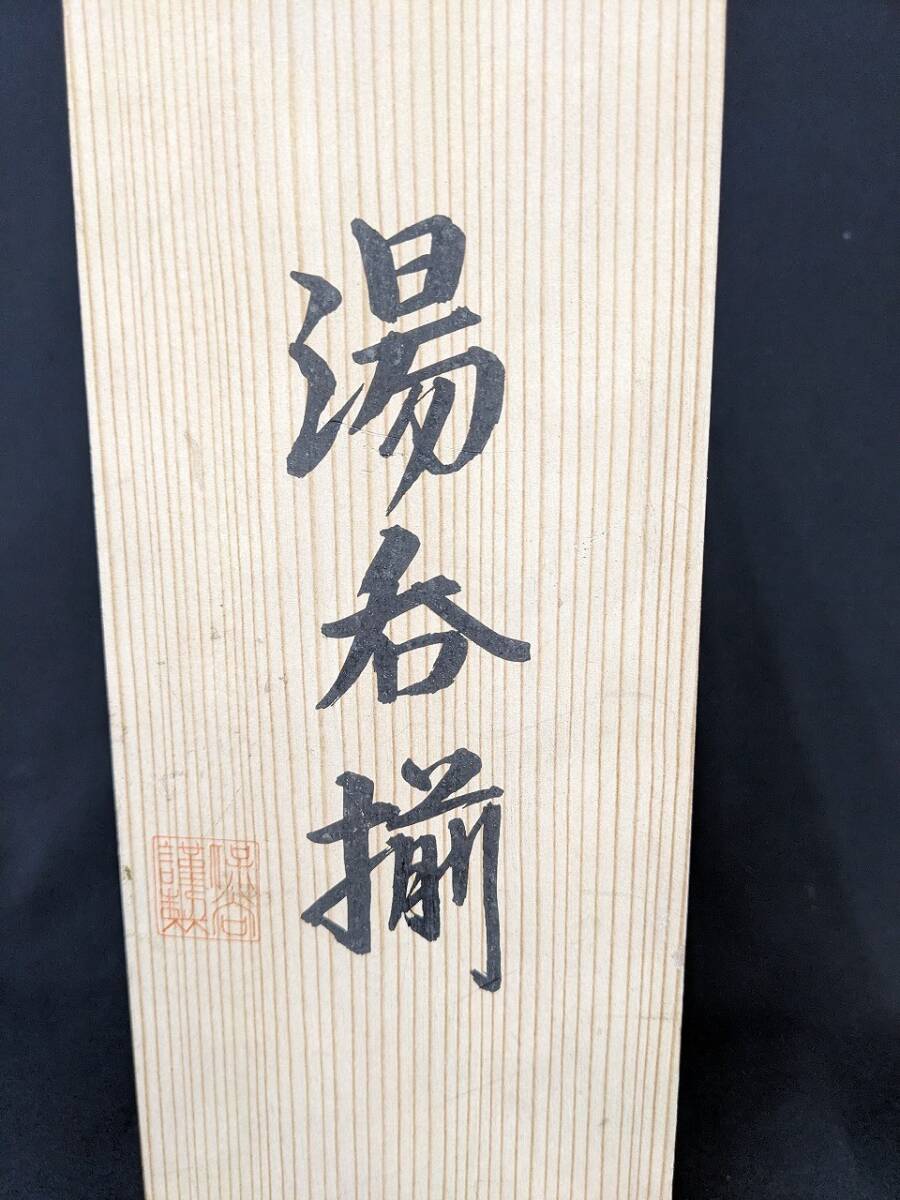 湯呑揃
保谷
謹製